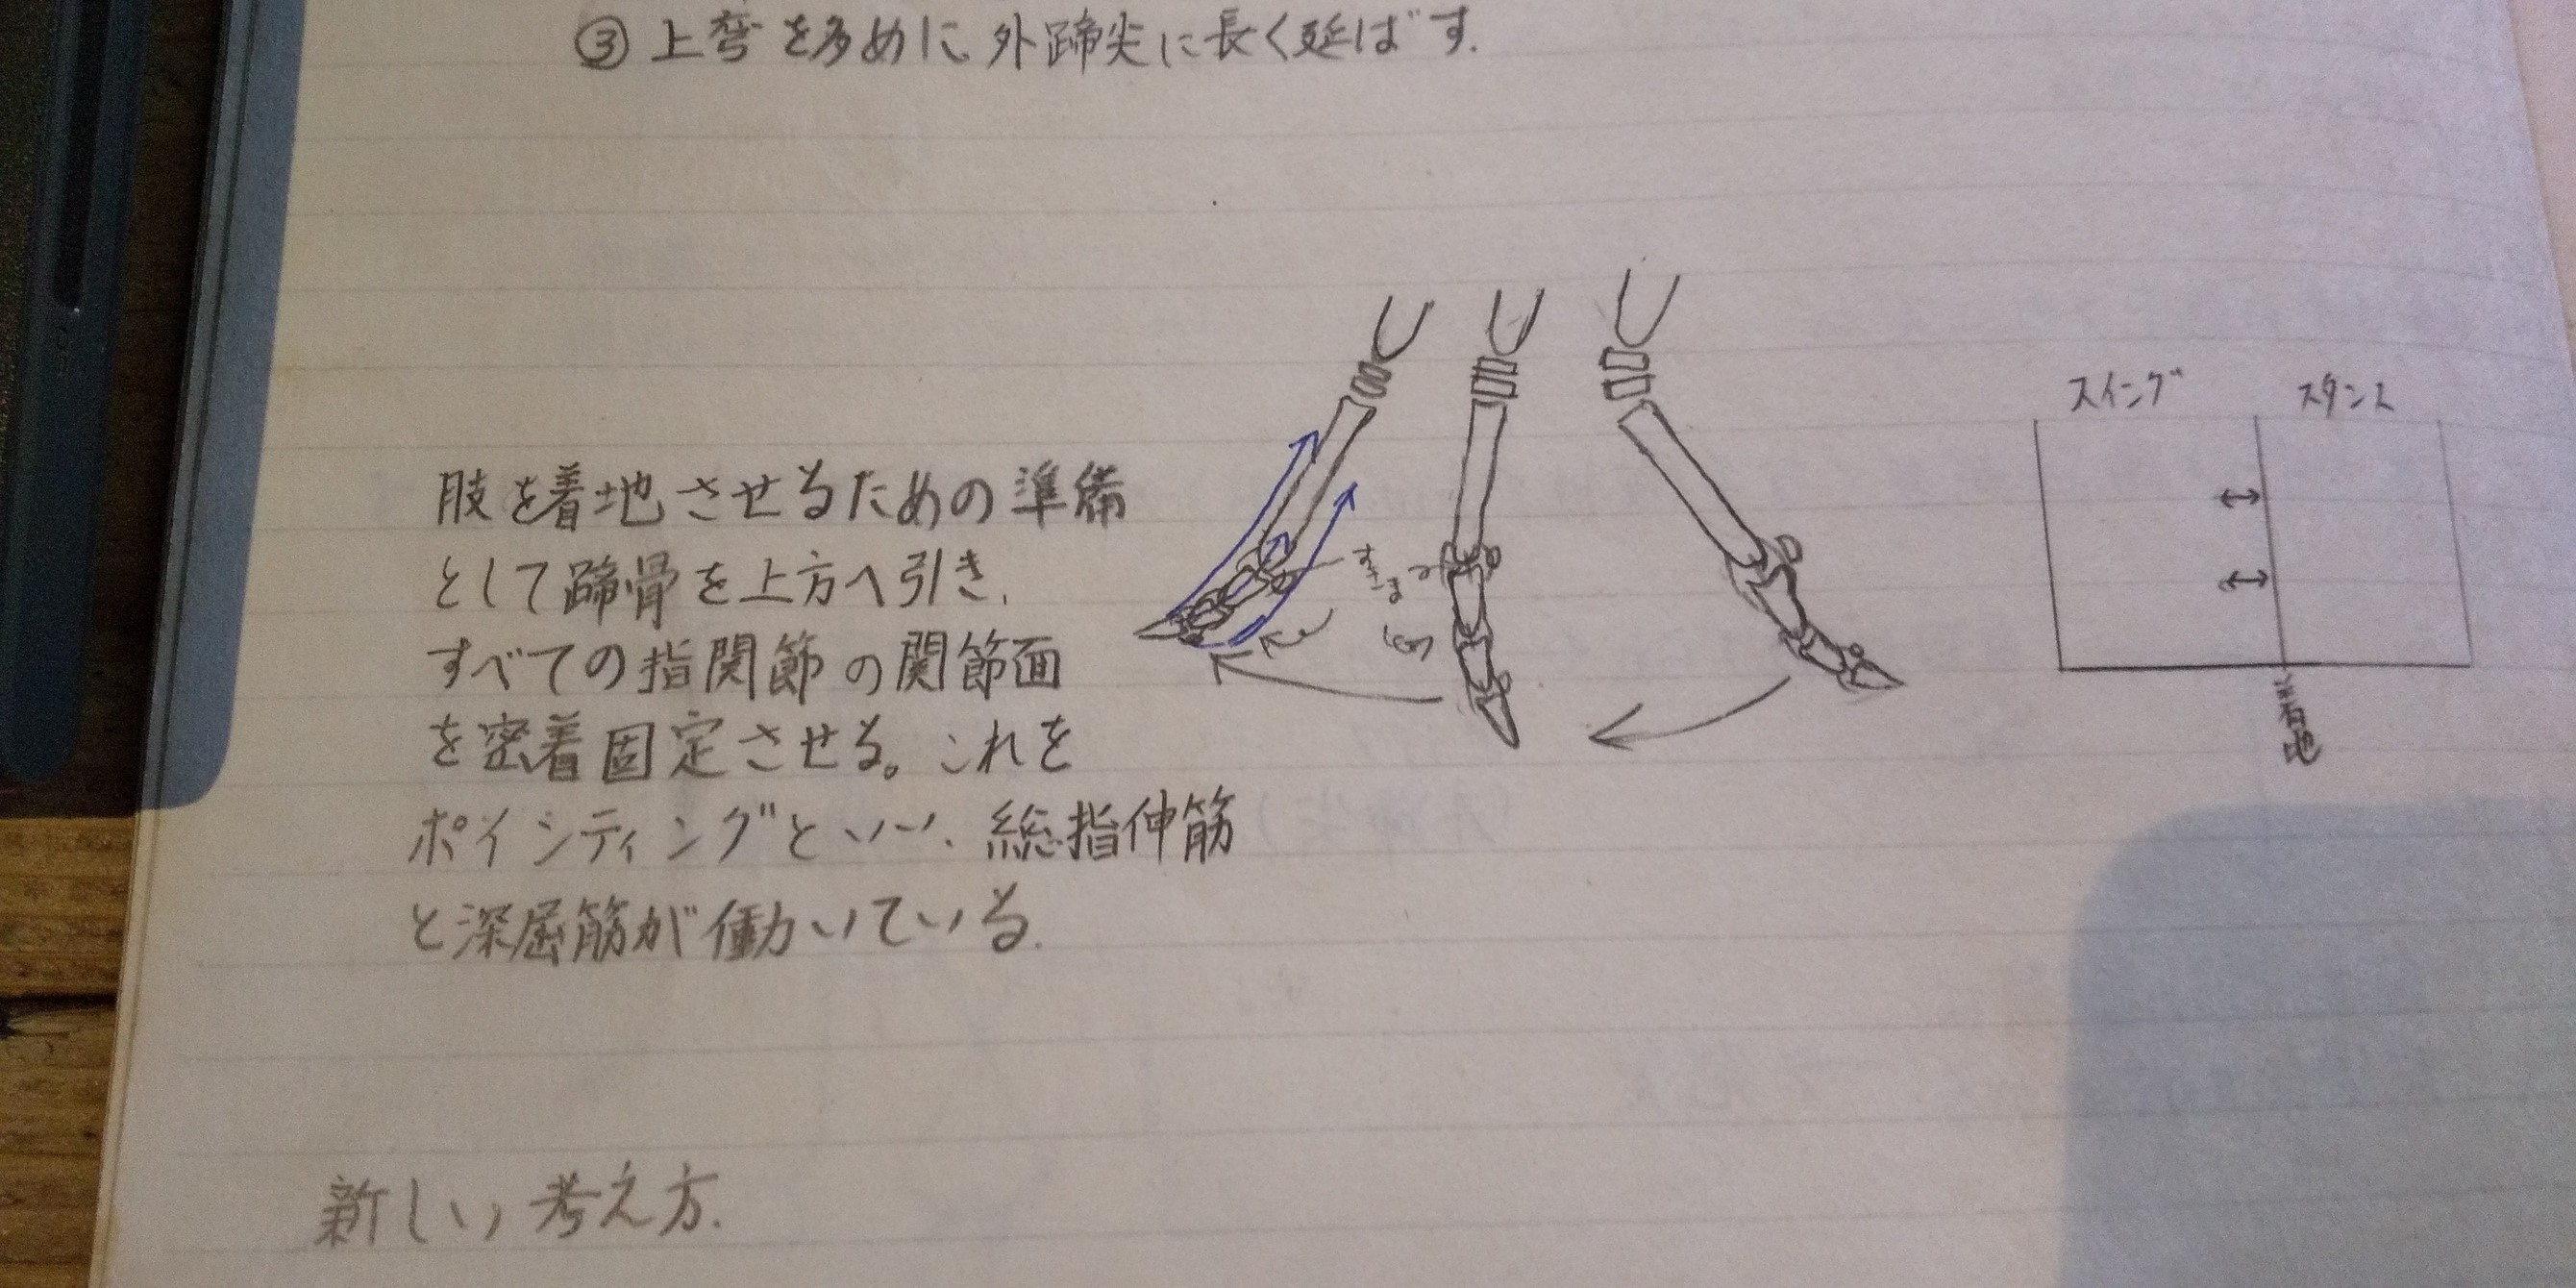 ③ 上弯を多めに、外蹄尖に長く延ばす.
肢を着地させるための準備
として蹄骨を上方へ引き、
すべての指関節の関節面
を密着固定させる。これを
ポインティングといい、総指伸筋
と深屈筋が働いている.
すきま
スイング
スタンス
新しい考え方.